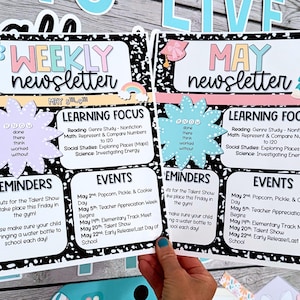 WEEKLY
newsletter
MAY
LEARNING FOCUS
Reading: Genre Study - Nonfiction
Math: Represent & Compare Numbers
to 120
Social Studies: Exploring Places (Maps)
Science: Investigating Energy
done
there
think
worked
without
REMINDERS
for the Talent Show
take place this Friday in
the gym!
make sure your child
bringing a water bottle to
school each day!
EVENTS
May 2nd: Popcorn, Pickle, & Cookie
Day
May 5th: Teacher Appreciation Week
Begins
May 19th: Elementary Track Meet
May 20th: Talent Show
May 22nd: Early Release/Last Day of
School
MAY
newsletter
LEARNING FOCUS
Reading: Genre Study - Nonfiction
Math: Represent & Compare Numbers
to 120
Social Studies: Exploring Places (Maps)
Science: Investigating Energy
done
there
think
worked
without
REMINDERS
for the Talent Show
take place this Friday in
the gym!
make sure your child
bringing a water bottle to
school each day!
EVENTS
May 2nd: Popcorn, Pickle, & Cookie
Day
May 5th: Teacher Appreciation
Begins
May 19th: Elementary Track Meet
May 20th: Talent Show
May 22nd: Early Release/Last Day of
School